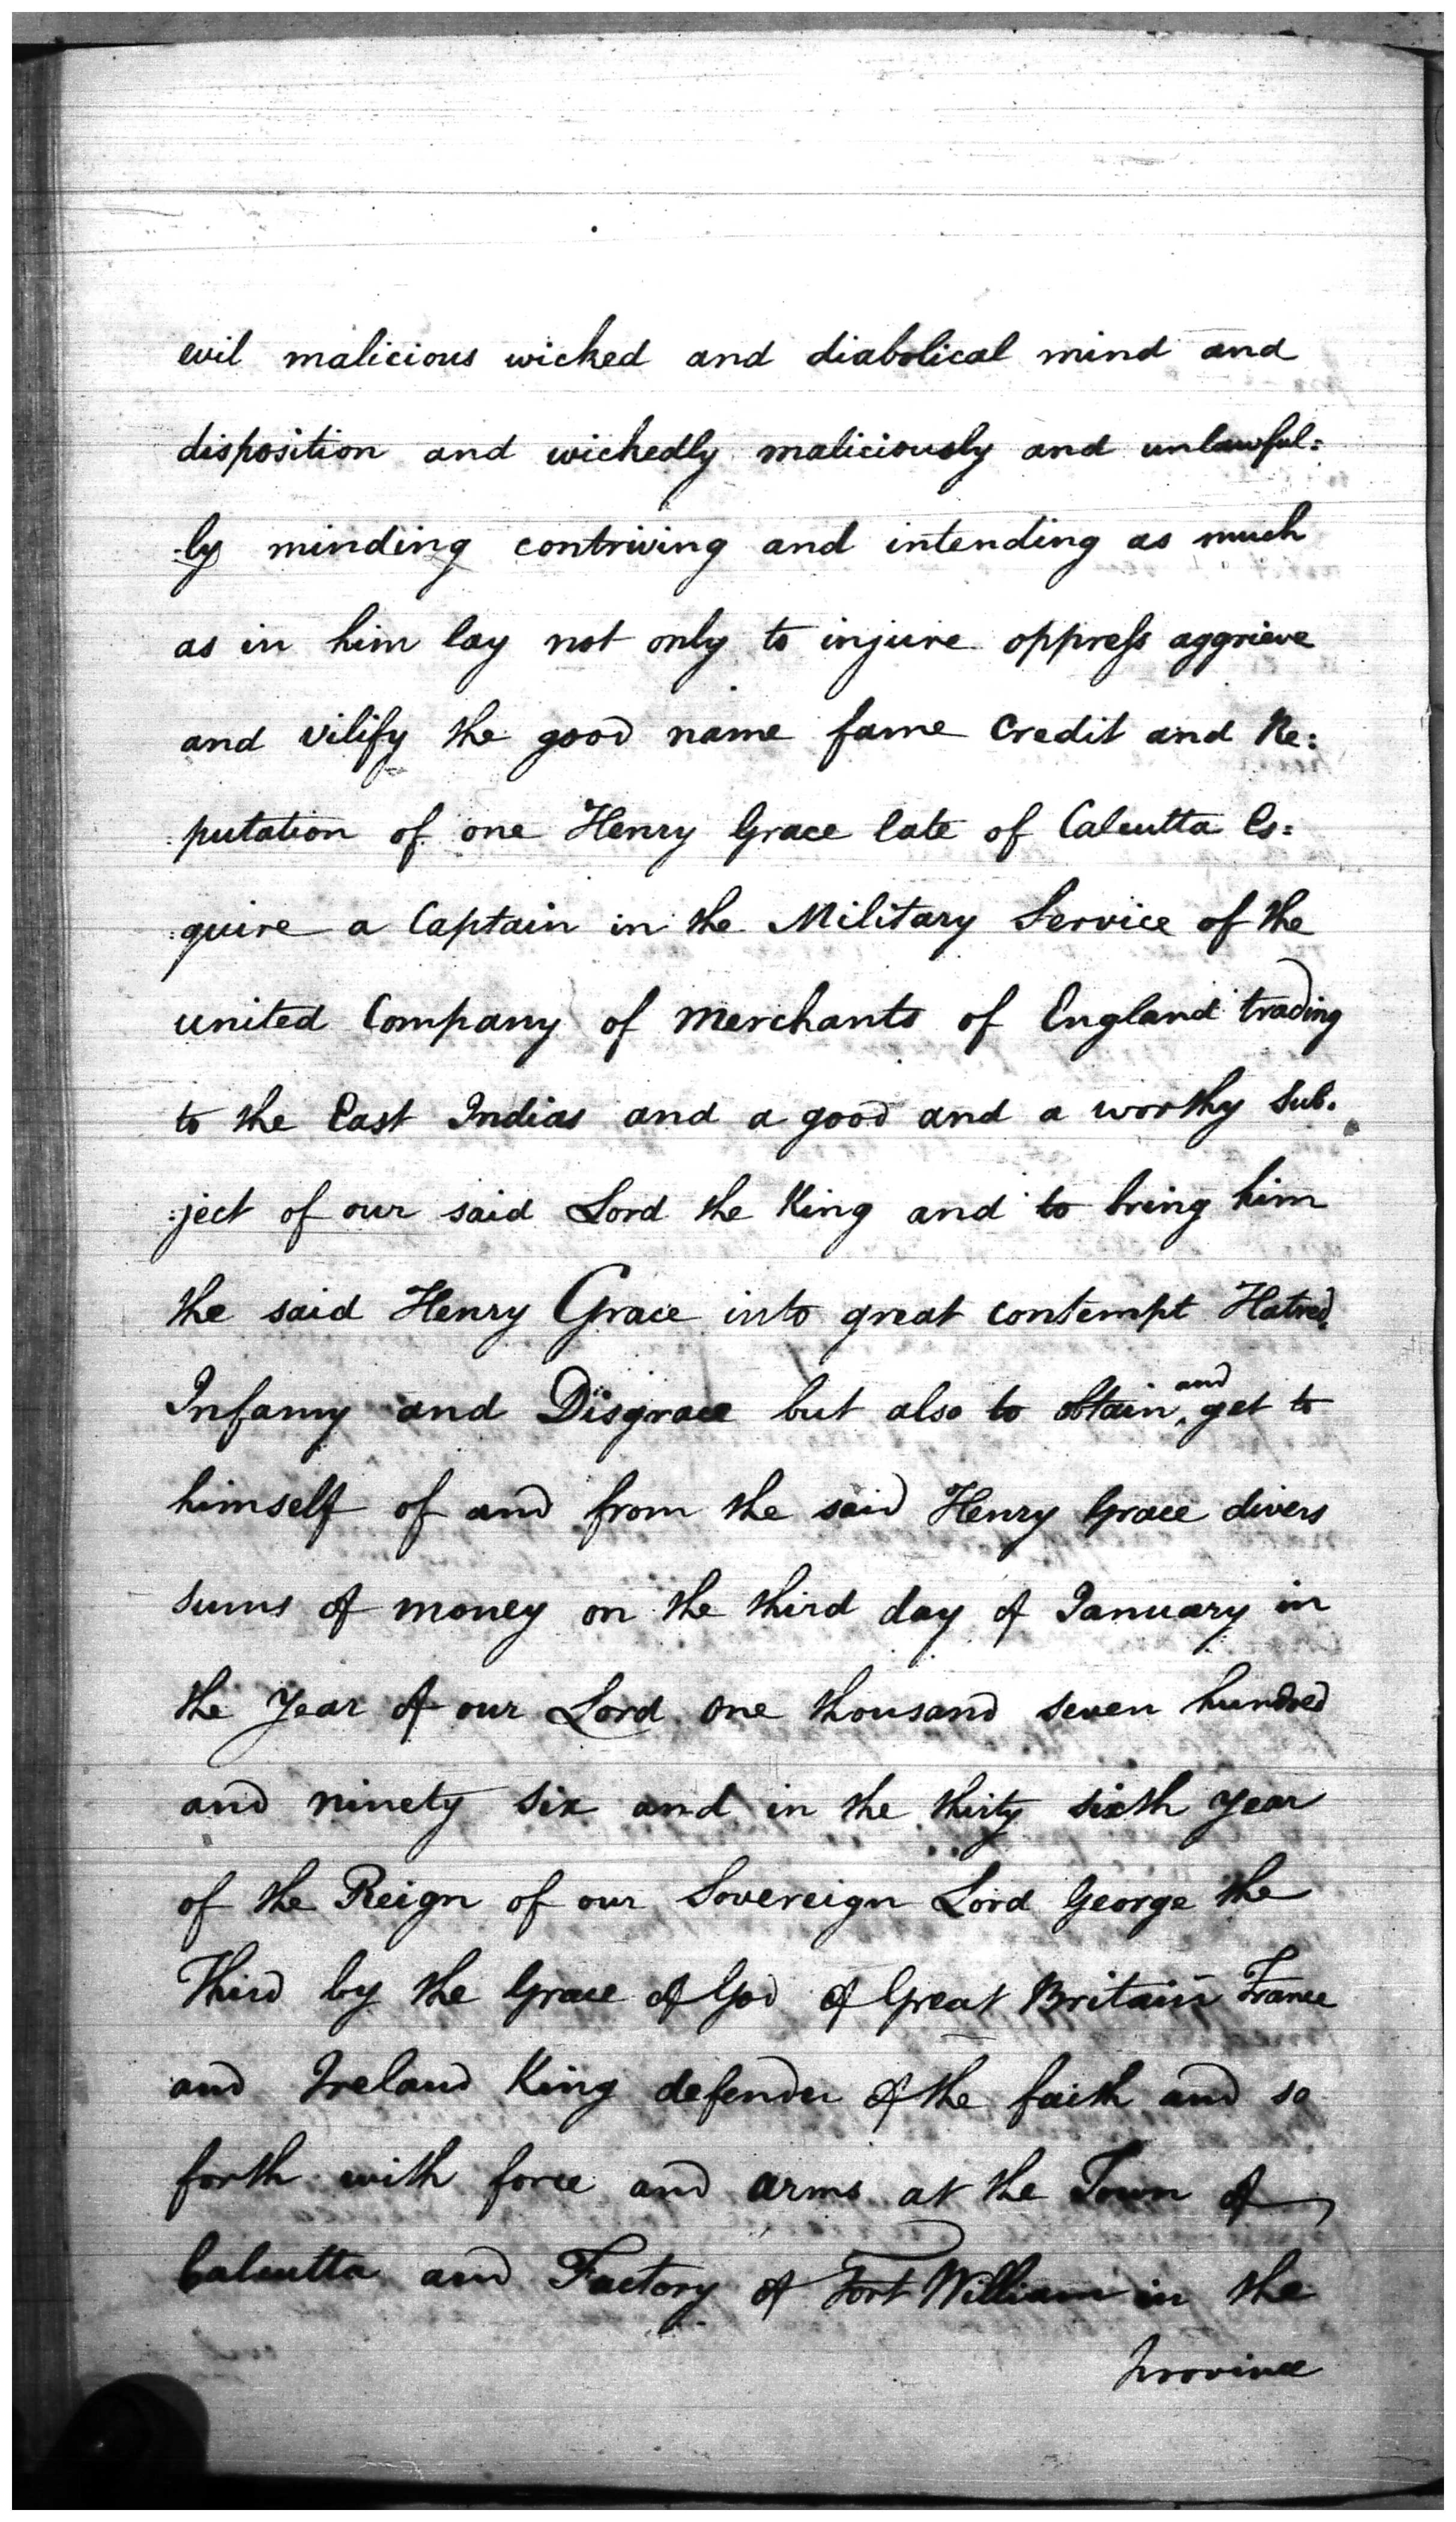 evil malicious wicked and diabolical mind and
disposition and wickedly maliciously and unlawful:
:ly minding contriving and intending as much
as in him lay not only to injure oppreſs aggrieve
and vilify the good name fame Credit and Re:
:putation of one Henry Grace late of Calcutta Es:
:quire a Captain in the Military Service of the
united Company of Merchants of England trading
to the East Indias and a good and a worthy Sub.
:ject of our said Lord the King and to bring him
the said Henry Grace into great contempt Hatred
Infamy and Disgrace but also to obtain ^and get to
himself of and from the said Henry Grace divers
sums of money on the third day of January in
the Year of our Lord one thousand seven hundred
and ninety six and in the thirty sixth year
of the Reign of our Sovereign Lord George the
Third by the Grace of God of Great Britain France
and Ireland King defender of the faith and so
forth with force and arms at the Town of
Calcutta and Factory of Fort William in the
province